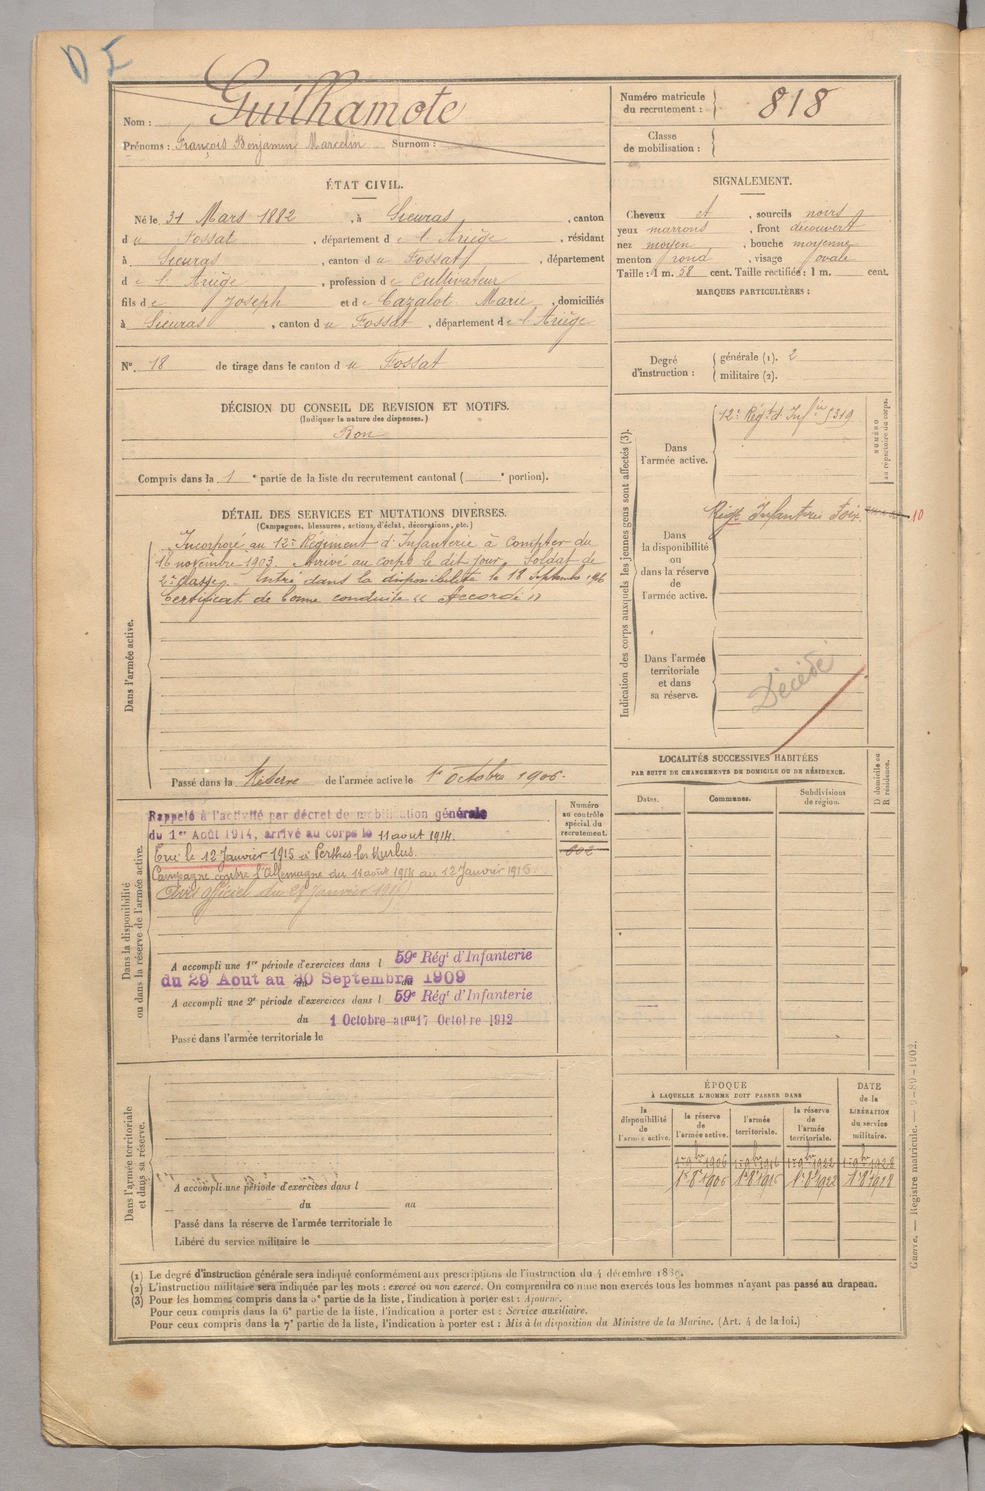 DI
Nom : Guilhamote
Prénoms : François Benjamin Marcelin Surnom :
Numéro matricule du recrutement : 818
Classe de mobilisation :
ÉTAT CIVIL.
Né le 31 Mars 1882, à Sieuras, canton
du Fossat, département de l'Ariège, résidant
à Sieuras, canton du Fossat, département
de l'Ariège, profession de Cultivateur
fils de Joseph et de Cazalot Marie, domiciliés
à Sieuras, canton du Fossat, département de l'Ariège
N° 18 de tirage dans le canton du Fossat
SIGNALEMENT.
Cheveux et, sourcils noirs
yeux marrons, front découvert
nez moyen, bouche moyenne
menton rond, visage ovale
Taille : 1 m. 58 cent. Taille rectifiée : 1 m. cent.
MARQUES PARTICULIÈRES :
Degré d'instruction : générale (1). 2
militaire (2).
DÉCISION DU CONSEIL DE REVISION ET MOTIFS.
(Indiquer la nature des dispenses.)
Bon
Compris dans la 1e partie de la liste du recrutement cantonal ( e portion).
DÉTAIL DES SERVICES ET MUTATIONS DIVERSES.
(Campagnes, blessures, actions d'éclat, décorations, etc.)
Dans l'armée active.
Incorporé au 12e Régiment d'Infanterie à Compter du
16 novembre 1903. Arrivé au corps le dit jour, Soldat de
2e classe. Entré dans la disponibilité le 18 Septembre 1906
Certificat de bonne conduite « Accordé »
Passé dans la Réserve de l'armée active le 1er Octobre 1906.
Indication des corps auxquels les jeunes gens sont affectés (3).
NUMÉRO au répertoire du corps.
Dans l'armée active.
12e Régt d'Infie 5319
Dans la disponibilité ou dans la réserve de l'armée active.
Régt Infanterie Foix
10
Dans l'armée territoriale et dans sa réserve.
Décédé
Dans la disponibilité ou dans la réserve de l'armée active.
Rappelé à l'activité par décret de mobilisation générale
du 1er Août 1914, arrivé au corps le 11 aout 1914.
Tué le 12 Janvier 1915 à Perthes les Hurlus.
Campagne contre l'Allemagne du 11 août 1914 au 12 Janvier 1915
Avis officiel du 28 Janvier 1915
Numéro au contrôle spécial du recrutement.
A accompli une 1re période d'exercices dans l 59e Régt d'Infanterie
du 29 Aout au 20 Septembre 1909
A accompli une 2e période d'exercices dans l 59e Régt d'Infanterie
du 1 Octobre au 17 Octobre 1912
Passé dans l'armée territoriale le
LOCALITÉS SUCCESSIVES HABITÉES
PAR SUITE DE CHANGEMENTS DE DOMICILE OU DE RÉSIDENCE.
D domicile ou R résidence.
Dates. Communes. Subdivisions de région.
Dans l'armée territoriale et dans sa réserve.
A accompli une période d'exercices dans l
du au
Passé dans la réserve de l'armée territoriale le
Libéré du service militaire le
ÉPOQUE
À LAQUELLE L'HOMME DOIT PASSER DANS
DATE de la LIBÉRATION du service militaire.
la disponibilité de l'armée active. la réserve de l'armée active. l'armée territoriale. la réserve de l'armée territoriale.
1er 9bre 1906 1er 9bre 1916 1er 9bre 1922 1er 9bre 1928
Guerre. — Registre matricule. — 9-89-1902.
(1) Le degré d'instruction générale sera indiqué conformément aux prescriptions de l'instruction du 4 décembre 1889.
(2) L'instruction militaire sera indiquée par les mots : exercé ou non exercé. On comprendra comme non exercés tous les hommes n'ayant pas passé au drapeau.
(3) Pour les hommes compris dans la 5e partie de la liste, l'indication à porter est : Ajourné.
Pour ceux compris dans la 6e partie de la liste, l'indication à porter est : Service auxiliaire.
Pour ceux compris dans la 7e partie de la liste, l'indication à porter est : Mis à la disposition du Ministre de la Marine. (Art. 4 de la loi.)